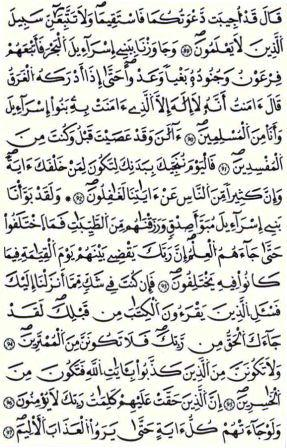 قَالَ قَدْ أُجِيبَت دَّعْوَتُكُمَا فَاسْتَقِيمَا وَلَا تَتَّبِعَآنِّ سَبِيلَ
الَّذِينَ لَا يَعْلَمُونَ ۝٨٩ وَجَاوَزْنَا بِبَنِي إِسْرَآءِيلَ الْبَحْرَ فَأَتْبَعَهُمْ
فِرْعَوْنُ وَجُنُودُهُ بَغْيًا وَعَدْوًا حَتَّى إِذَآ أَدْرَكَهُ الْغَرَقُ
قَالَ ءَامَنتُ أَنَّهُ لَآ إِلَهَ إِلَّا الَّذِي ءَامَنَتْ بِهِ بَنُوٓا إِسْرَآءِيلَ
وَأَنَا مِنَ الْمُسْلِمِينَ ۝٩٠ ءَآلْـَٔنَ وَقَدْ عَصَيْتَ قَبْلُ وَكُنتَ مِنَ
الْمُفْسِدِينَ ۝٩١ فَالْيَوْمَ نُنَجِّيكَ بِبَدَنِكَ لِتَكُونَ لِمَنْ خَلْفَكَ ءَايَةً
وَإِنَّ كَثِيرًا مِّنَ النَّاسِ عَنْ ءَايَتِنَا لَغَفِلُونَ ۝٩٢ وَلَقَدْ بَوَّأْنَا
بَنِي إِسْرَآءِيلَ مُبَوَّأَ صِدْقٍ وَرَزَقْنَهُم مِّنَ الطَّيِّبَتِ فَمَا اخْتَلَفُوا
حَتَّى جَآءَهُمُ الْعِلْمُ إِنَّ رَبَّكَ يَقْضِي بَيْنَهُمْ يَوْمَ الْقِيَمَةِ فِيمَا
كَانُوا فِيهِ يَخْتَلِفُونَ ۝٩٣ فَإِن كُنتَ فِي شَكٍّ مِّمَّآ أَنزَلْنَآ إِلَيْكَ
فَسْـَٔلِ الَّذِينَ يَقْرَءُونَ الْكِتَبَ مِن قَبْلِكَ لَقَدْ
جَآءَكَ الْحَقُّ مِن رَّبِّكَ فَلَا تَكُونَنَّ مِنَ الْمُمْتَرِينَ ۝٩٤
وَلَا تَكُونَنَّ مِنَ الَّذِينَ كَذَّبُوا بِـَٔايَتِ اللَّهِ فَتَكُونَ مِنَ
الْخَسِرِينَ ۝٩٥ إِنَّ الَّذِينَ حَقَّتْ عَلَيْهِمْ كَلِمَتُ رَبِّكَ لَا يُؤْمِنُونَ ۝٩٦
وَلَوْ جَآءَتْهُمْ كُلُّ ءَايَةٍ حَتَّى يَرَوُا الْعَذَابَ الْأَلِيمَ ۝٩٧